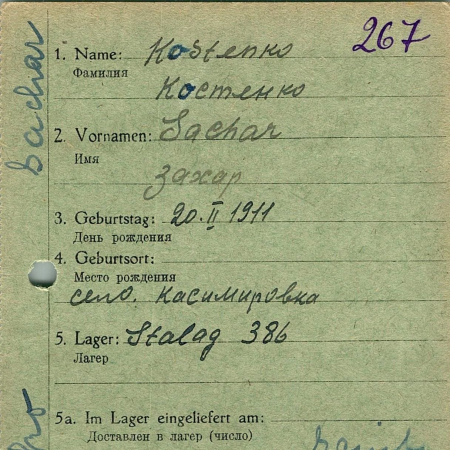 267
1. Name: Kostenko
Фамилия
Костенко
2. Vornamen: Sachar
Имя
Захар
3. Geburtstag: 20. II 1911
День рождения
4. Geburtsort:
Место рождения
село. Касимировка
5. Lager: Stalag 386
Лагер
5a. Im Lager eingeliefert am:
Доставлен в лагер (число)
Sachar